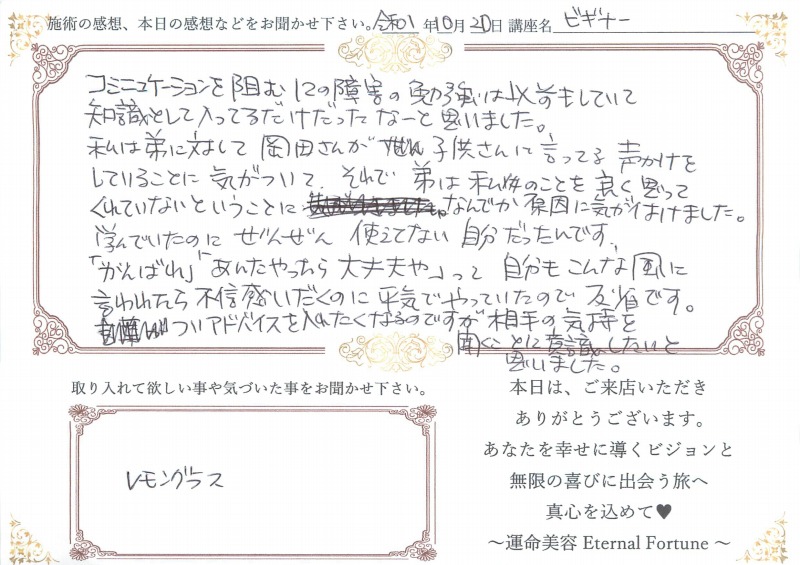 施術の感想、本日の感想などをお聞かせ下さい。令和1年10月20日 講座名 ビギナー
コミニュケーションを阻む12の障害の勉強は以前もしていて
知識として入ってるだけだったなーと思いました。
私は弟に対して岡田さんが 子供さんに言ってる声かけを
していることに気がついて、それで弟は私のことを良く思って
くれていないということに なんでか原因に気がつけました。
学んでいたのにぜんぜん使えてない自分だったんです。
「がんばれ」「あんたやったら大丈夫や」って自分もこんな風に
言われたら不信感いだくのに平気でやっていたので反省です。
ついアドバイスを入れたくなるのですが相手の気持を
聞くことに意識したいと
思いました。
取り入れて欲しい事や気づいた事をお聞かせ下さい。
レモングラス
本日は、ご来店いただき
ありがとうございます。
あなたを幸せに導くビジョンと
無限の喜びに出会う旅へ
真心を込めて♥
～運命美容 Eternal Fortune ～